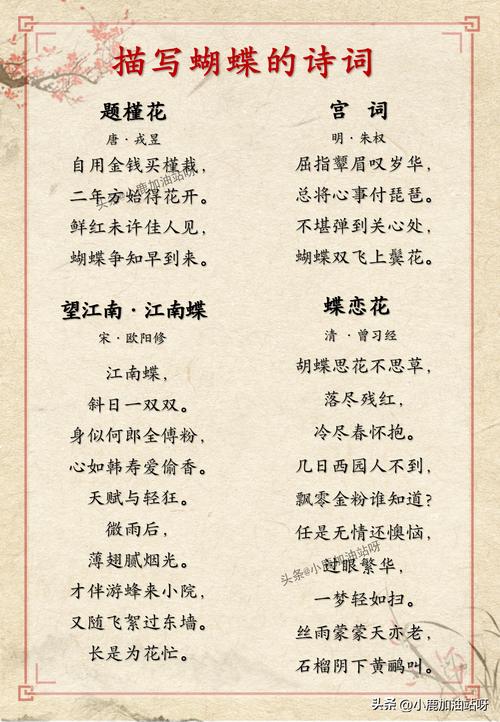 描写蝴蝶的诗词
题槿花
唐·戎昱
自用金钱买槿栽，
二年方始得花开。
鲜红未许佳人见，
蝴蝶争知早到来。
宫 词
明·朱权
屈指颦眉叹岁华，
总将心事付琵琶。
不堪弹到关心处，
蝴蝶双飞上鬓花。
望江南·江南蝶
宋·欧阳修
江南蝶，
斜日一双双。
身似何郎全傅粉，
心如韩寿爱偷香。
天赋与轻狂。
微雨后，
薄翅腻烟光。
才伴游蜂来小院，
又随飞絮过东墙。
长是为花忙。
蝶恋花
清·曾习经
胡蝶思花不思草，
落尽残红，
冷尽春怀抱。
几日西园人不到，
飘零金粉谁知道？
任是无情还懊恼，
过眼繁华，
一梦轻如扫。
丝雨蒙蒙天亦老，
石榴阴下黄鹂叫。
头条@小鹿加油站呀
头条@小鹿加油站呀
头条@小鹿加油站呀